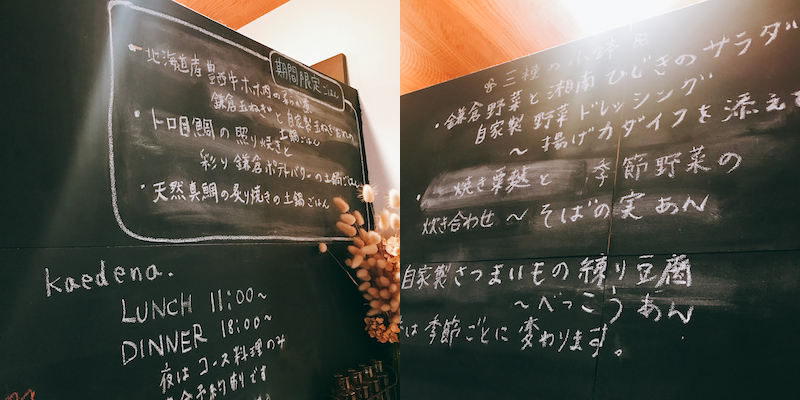 期間限定ごはん
・北海道産豊西牛ホホ肉の
鎌倉玉ねぎと自家製玉ねぎ
・トロ目鯛の照り焼きと
土鍋ごはん
彩り鎌倉ポテトバターの土鍋ごはん
・天然真鯛の炙り焼きの土鍋ごはん
kaedena.
LUNCH 11:00~
DINNER 18:00~
夜はコース料理のみ
予約制です
三種の小鉢
・鎌倉野菜と湘南ひじきのサラダ
自家製野菜ドレッシング
~揚げカダイフを添え
・焼き粟麩と季節野菜の
炊き合わせ~そばの実あん
自家製さつまいもの練り豆腐
~べっこうあん
は季節ごとに変わります。